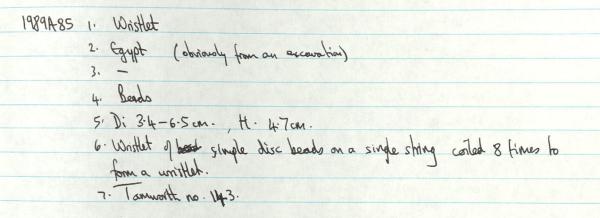 1989A85 1. Wristlet
2. Egypt (obviously from an excavation)
3. –
4. Beads
5. Di 3.4–6.5cm., H. 4.7cm.
6. Wristlet of simple disc beads on a single string coiled 8 times to
form a wristlet.
7. Tamworth no. 143.